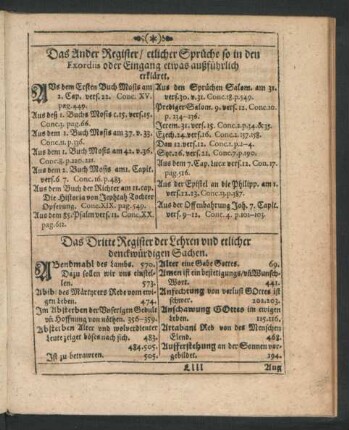 Das Ander Register / etlicher Sprüche so in den
Exordiis oder Eingang etwas außführlich
erkläret.
AUs dem Ersten Buch Mosis am
2. Cap. vers. 22. Conc. XV.
pag. 449.
Aus deß 1. Buchs Mosis c. 15. vers. 15.
Conc. 3. pag. 66.
Aus dem 1. Buch Mosis am 37. v. 33.
Conc. 11. p. 316.
Aus dem 1. Buch Mosis am 42. v. 36.
Conc. 8. p. 220. 221.
Aus dem 1. Buch Mosis am 1. Capit.
vers. 6 7. Conc. 16. p. 483.
Aus dem Buch der Richter am 11. cap.
Die Historia von Jephtah Tochter
Opferung. Conc. XIX. pag. 549.
Aus dem 85. Psalm vers. 11. Conc. XX.
pag. 611.
Aus den Sprüchen Salom. am 31.
vers. 30. v. 31. Conc. 18. p. 549.
Prediger Salom. 9. vers. 12. Conc. 10.
p. 234–236.
Jerem. 31. vers. 15. Conc. 2. p. 54. & 31.
Ezech. 24. vers. 16. Conc. 2. 137. 138.
Dan 12. vers. 12. Conc. p. 2–4.
Syr. 26. vers. 2. Conc. 7. vers. 190. 11.
Aus dem 7. Cap. Luce vers. 12. Conc. 12.
p. 346.
Aus der Epistel an die Philipp. am 1.
vers. 22. 23. Conc. 13. p. 187.
Aus der Offenbahrung Joh. 7. Capit.
vers. 9–12. Cont. 4. p. 101–103.
Das Dritte Register der Lehren vnd etlicher
denckwürdigen Sachen.
ABendmahl des Lambs. 570.
Dazu sollen wir uns einstel-
len. 573.
Abib: des Märtyrers Rede vom ewi-
gen Leben. 474.
Im Absterben der Vnserigen Gedult
uñ Hoffnung von nöthen. 356–359.
Absterben Alter und wolverdienter
Leute zeiget böses nach sich. 483.
484. 505.
Ist zu betrauren. 505.
Alter eine Gabe Gottes. 69.
Amen ist ein bejettigungs- uñ Wunsch-
Wort. 441.
Anfechtung von verlust GOttes ist
schwer. 202. 203.
Anschawung GOttes im ewigen
Leben. 115. 116.
Artabani Red von des Menschen
Elend. 468.
Aufferstehung an der Sonnen vor-
gebildet. 194.
Llll
Aug